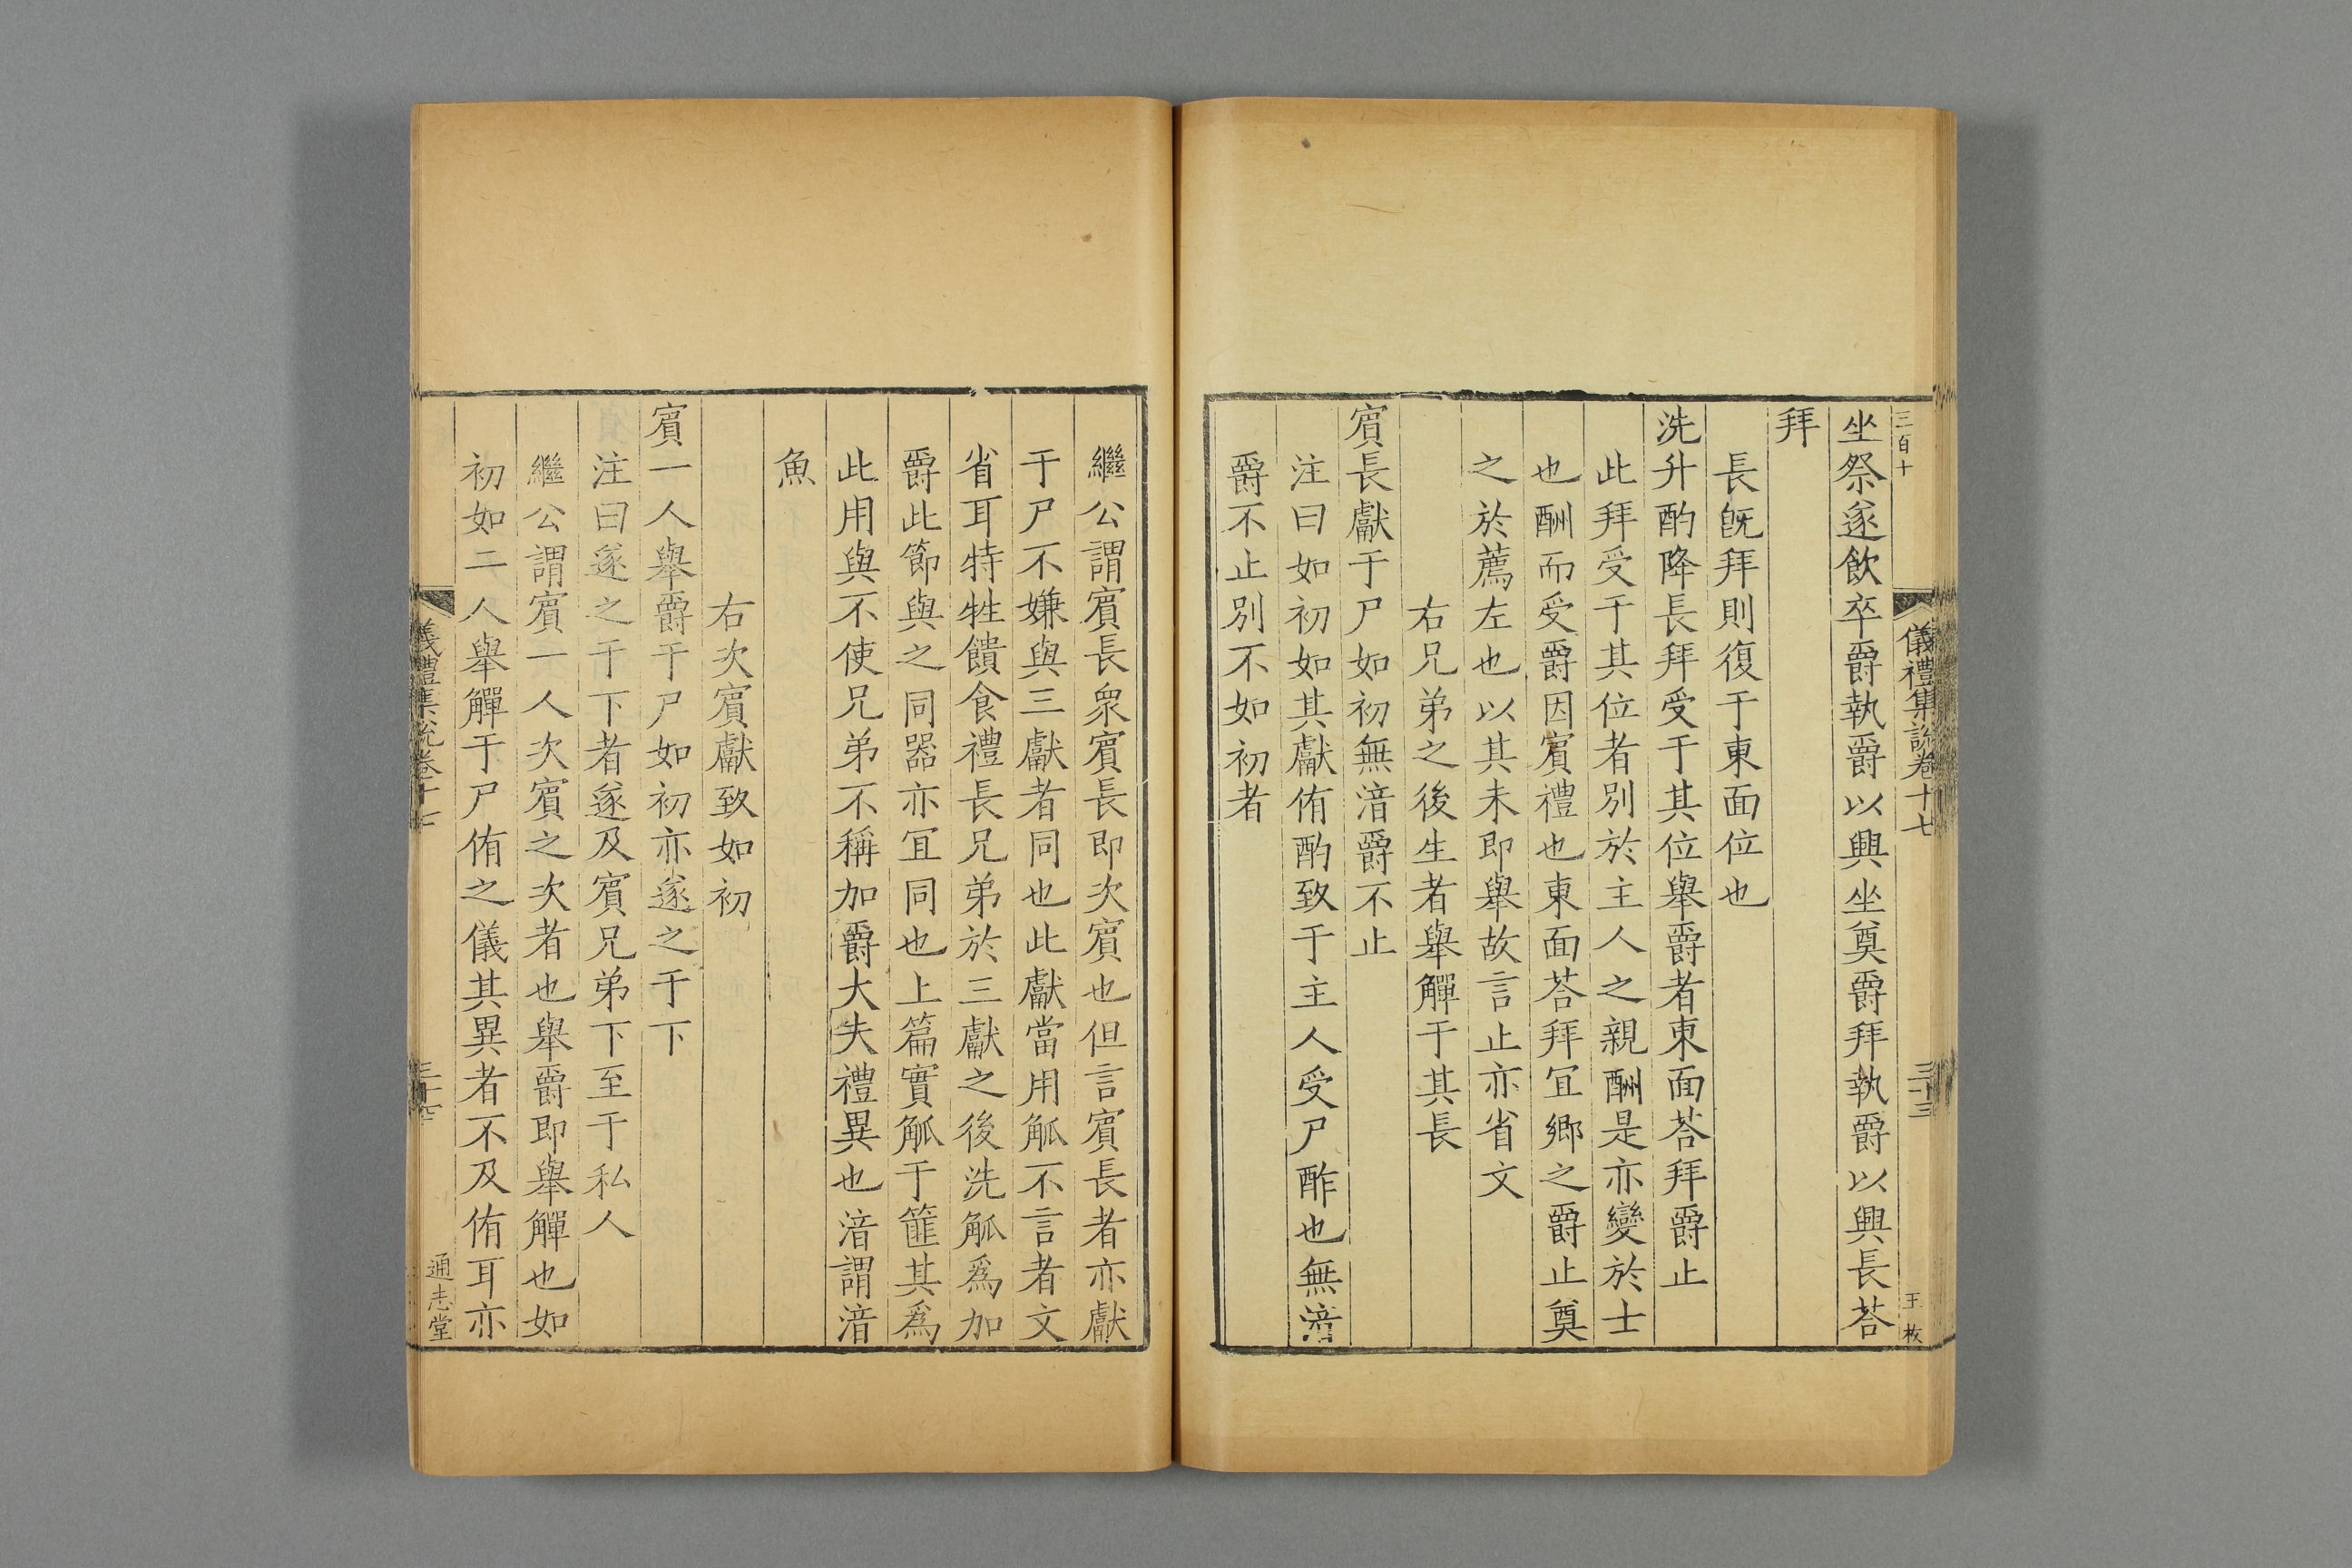 三百十
儀禮集說卷十七
三十三
王枚
坐祭遂飲卒爵執爵以興坐奠爵拜執爵以興長荅
拜
長旣拜則復于東面位也
洗升酌降長拜受于其位舉爵者東面荅拜爵止
此拜受于其位者別於主人之親酬是亦變於士
也酬而受爵因賔禮也東面荅拜冝鄉之爵止奠
之於薦左也以其未即舉故言止亦省文
右兄弟之後生者舉觶于其長
賔長獻于尸如初無湆爵不止
注曰如初如其獻侑酌致于主人受尸酢也無湆
爵不止別不如初者
繼公謂賔長衆賔長即次賔也但言賔長者亦獻
于尸不嫌與三獻者同也此獻當用觚不言者文
省耳特牲饋食禮長兄弟於三獻之後洗觚爲加
爵此節與之同器亦冝同也上篇實觚于篚其爲
此用與不使兄弟不稱加爵大夫禮異也湆謂湆
魚
右次賔獻致如初
賔一人舉爵于尸如初亦遂之于下
注曰遂之于下者遂及賔兄弟下至于私人
繼公謂賔一人次賔之次者也舉爵即舉觶也如
初如二人舉觶于尸侑之儀其異者不及侑耳亦
儀禮集說卷十七
通志堂